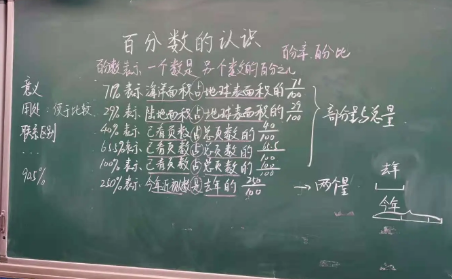 百分数的认识
百分率 百分比
百分数表示一个数是另一个数的百分之几
意义
用处:便于比较
联系区别
...
90.5%
71%表示海洋面积占地球表面积的71/100
29%表示陆地面积占地球表面积的29/100
40%表示已有页数占总页数的40/100
65.5%表示已有页数占总页数的65.5/100
100%表示已有页数占总页数的100/100
250%表示今年 是去年的250/100
部分量与总量
→两个量
去年
今年